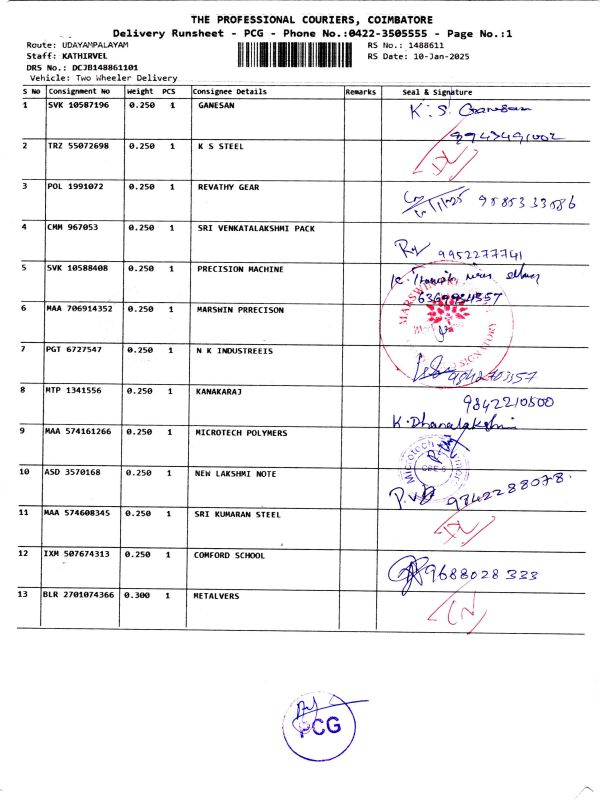 THE PROFESSIONAL COURIERS, COIMBATORE
Delivery Runsheet - PCG - Phone No.:0422-3505555 - Page No.:1
Route: UDAYAMPALAYAM RS No.: 1488611
Staff: KATHIRVEL RS Date: 10-Jan-2025
DRS No.: DCJB148861101
Vehicle: Two Wheeler Delivery
S No Consignment No Weight PCS Consignee Details Remarks Seal & Signature
1 SVK 10587196 0.250 1 GANESAN K. S. Ganesan
9943491002
2 TRZ 55072698 0.250 1 K S STEEL
3 POL 1991072 0.250 1 REVATHY GEAR 9585333586
4 CMM 967053 0.250 1 SRI VENKATALAKSHMI PACK
9952277741
5 SVK 10588408 0.250 1 PRECISION MACHINE
6369934357
6 MAA 706914352 0.250 1 MARSHIN PRRECISON
7 PGT 6727547 0.250 1 N K INDUSTREEIS
9842703157
8 MTP 1341556 0.250 1 KANAKARAJ 9842210500
K. Dhanalakshmi
9 MAA 574161266 0.250 1 MICROTECH POLYMERS
Microtech
10 ASD 3570168 0.250 1 NEW LAKSHMI NOTE
9842288078.
11 MAA 574608345 0.250 1 SRI KUMARAN STEEL
12 IXM 507674313 0.250 1 COMFORD SCHOOL 9688028333
13 BLR 2701074366 0.300 1 METALVERS
PCG